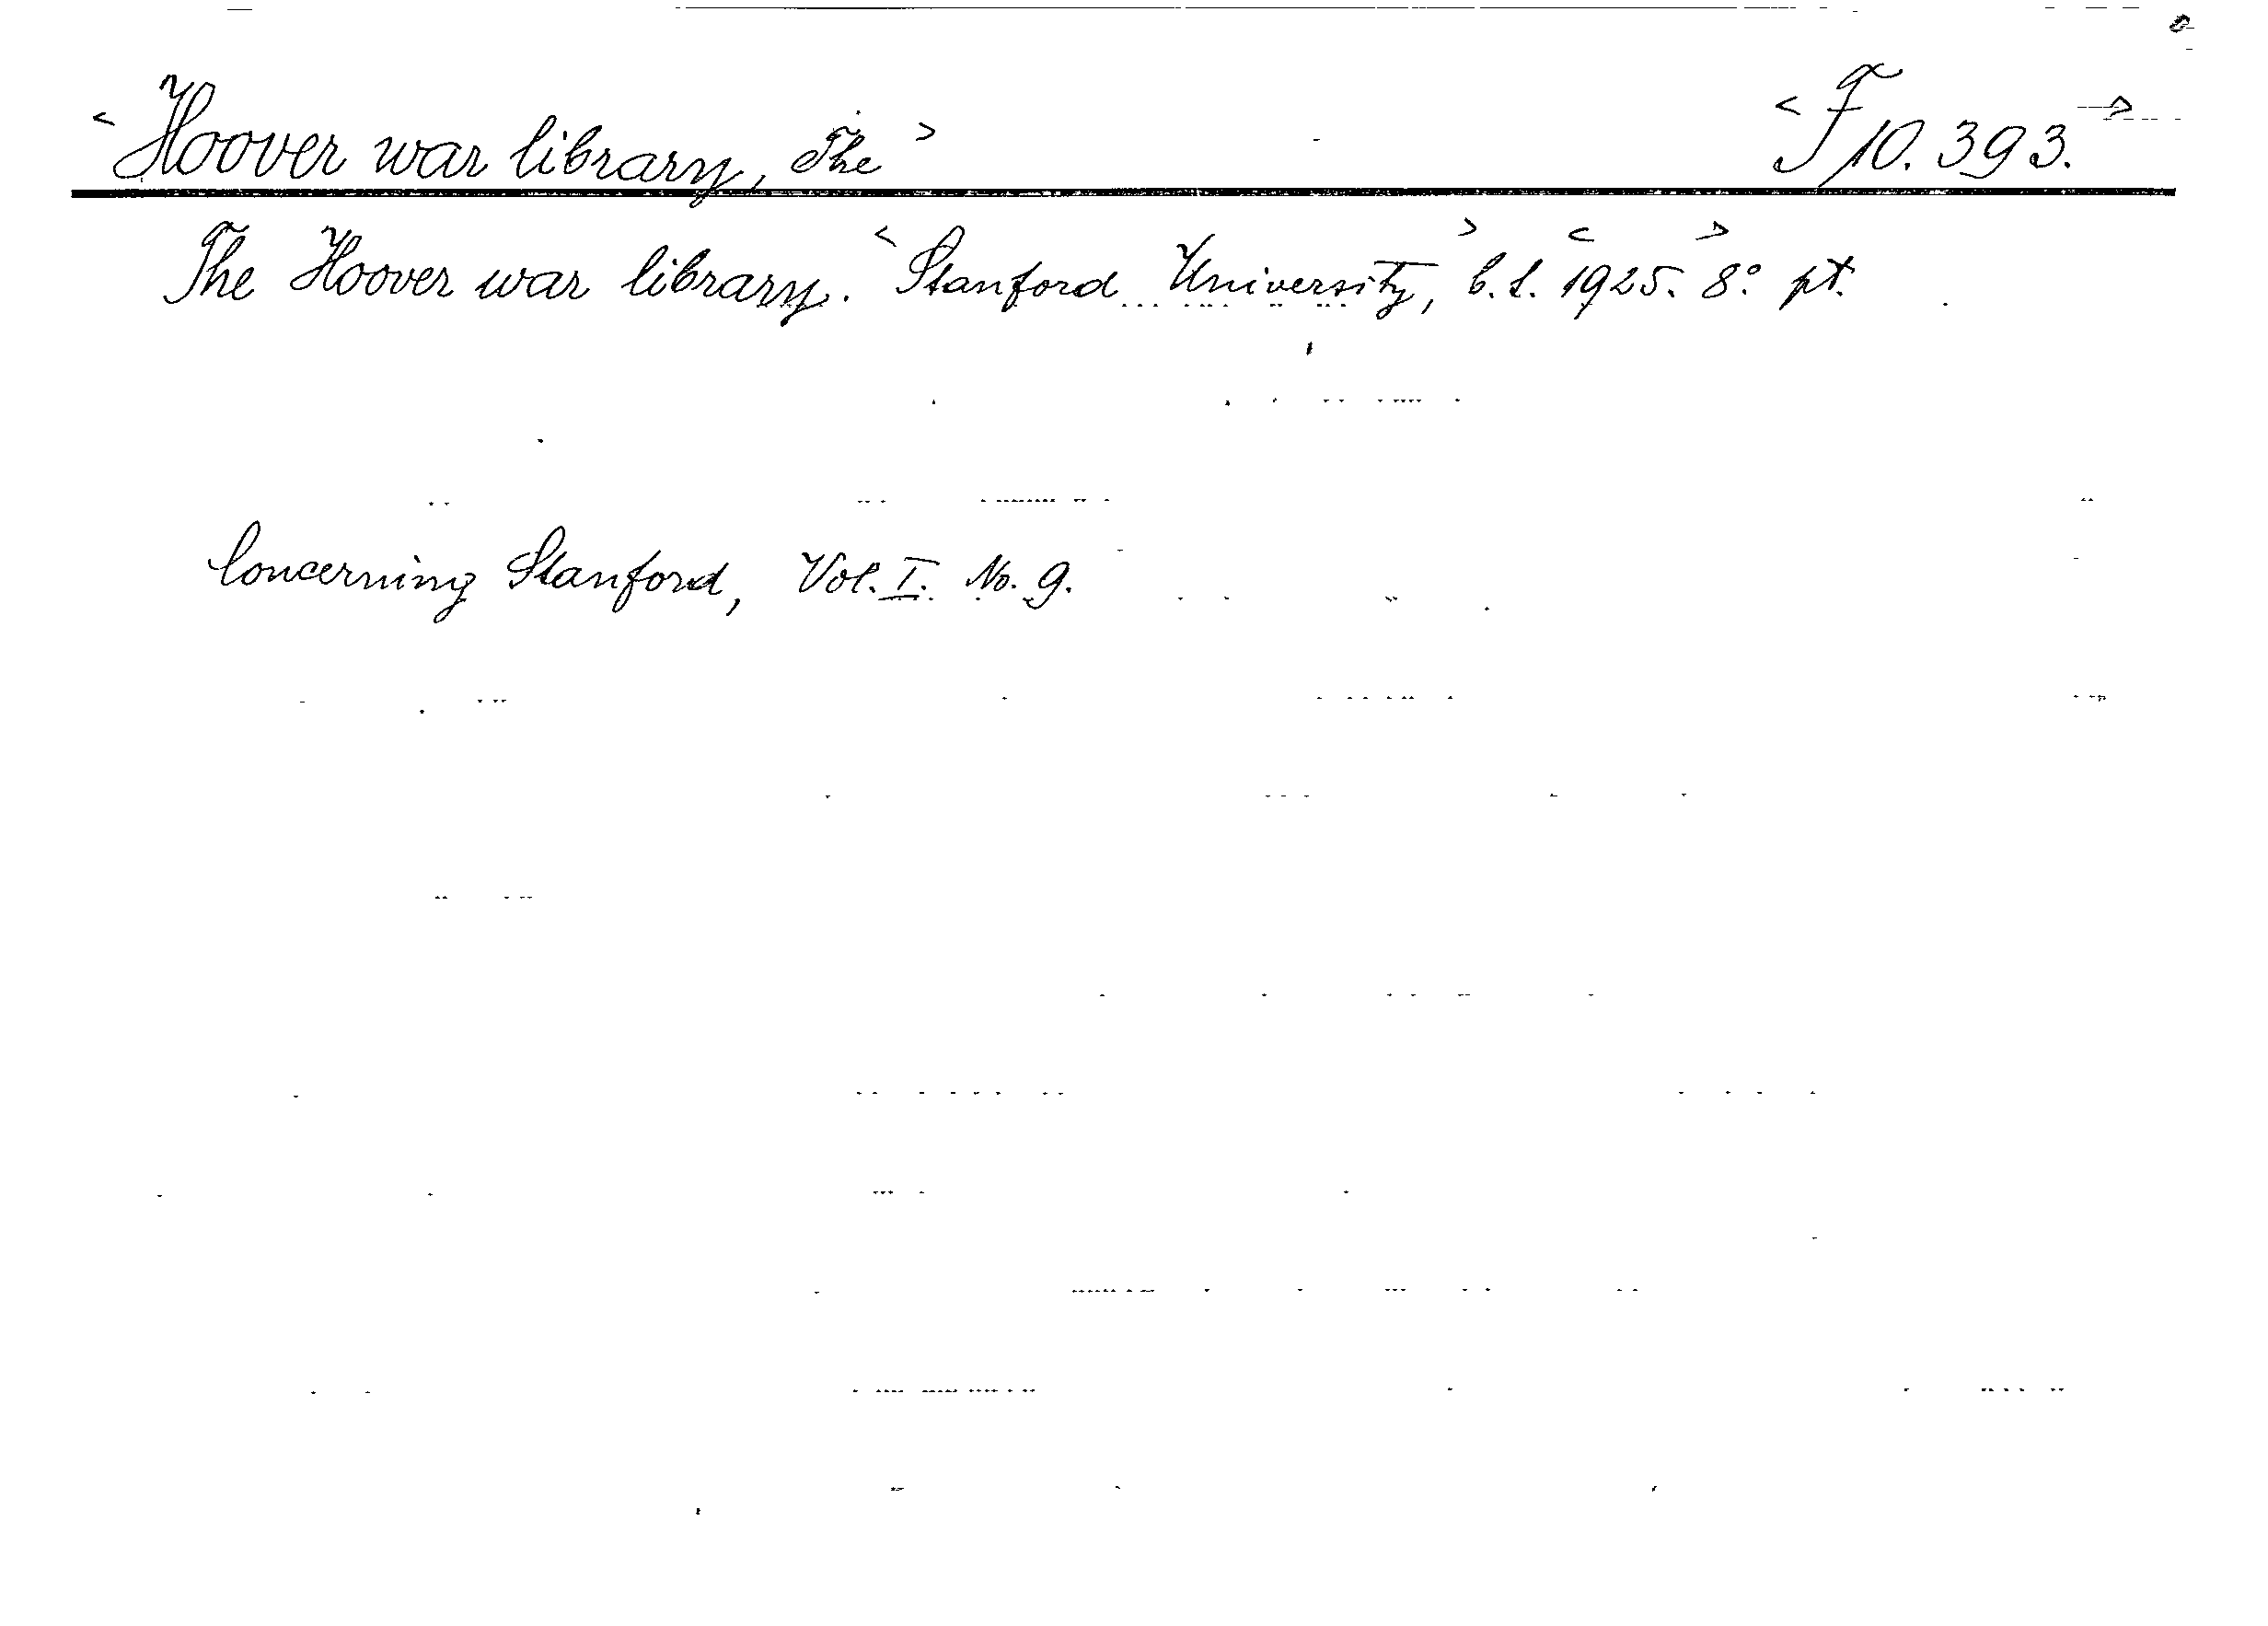 <Hoover war library, The> <F 10.393.>
The Hoover war library. <Stanford University,> b.l. <1925.> 8° pt.
Concerning Stanford, Vol. I. No. 9.